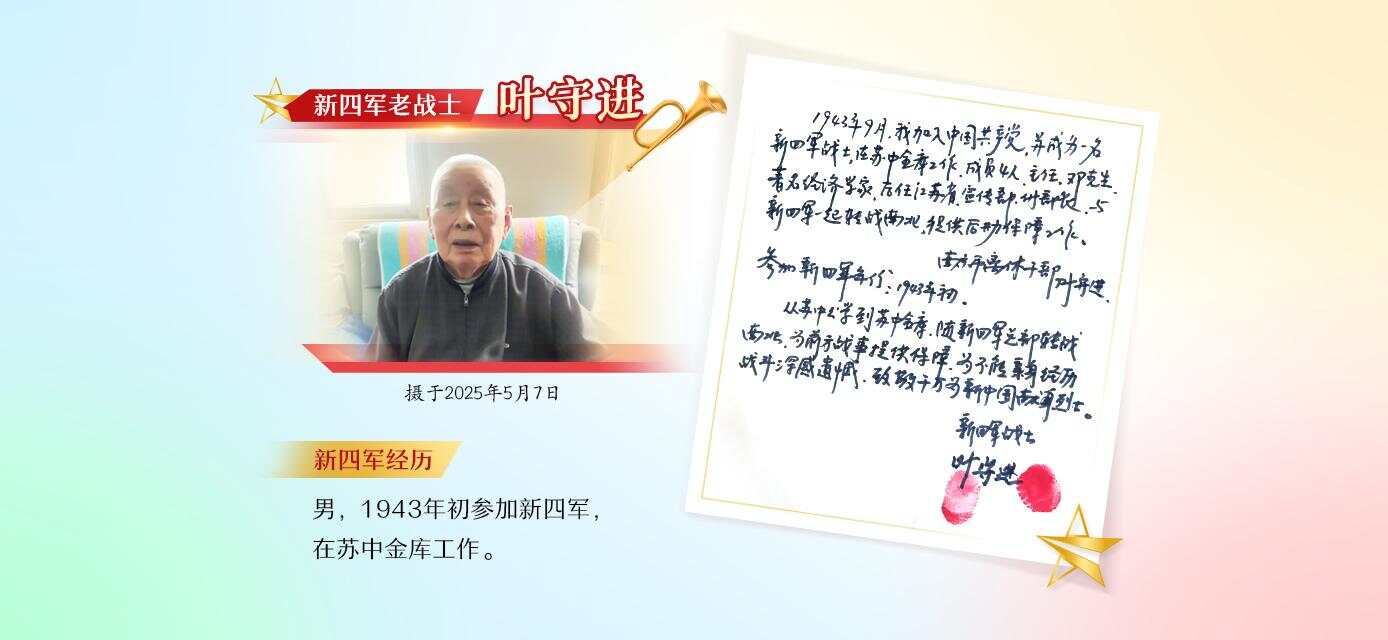 新四军老战士 叶守进
摄于2025年5月7日
新四军经历
男，1943年初参加新四军，
在苏中金库工作。
1943年9月，我加入中国共产党，并成为一名
新四军战士，在苏中金库工作，成员4人，主任，邓克生，
著名经济学家，后任江苏省宣传部付部长，与
新四军一起转战南北，提供后勤保障工作。
南京市离休干部叶守进
参加新四军年份：1943年初。
从苏中公学到苏中金库，随新四军总部转战
南北，为前方战事提供保障，为不能亲身经历
战斗深感遗憾，致敬千万为新中国献身烈士。
新四军战士
叶守进